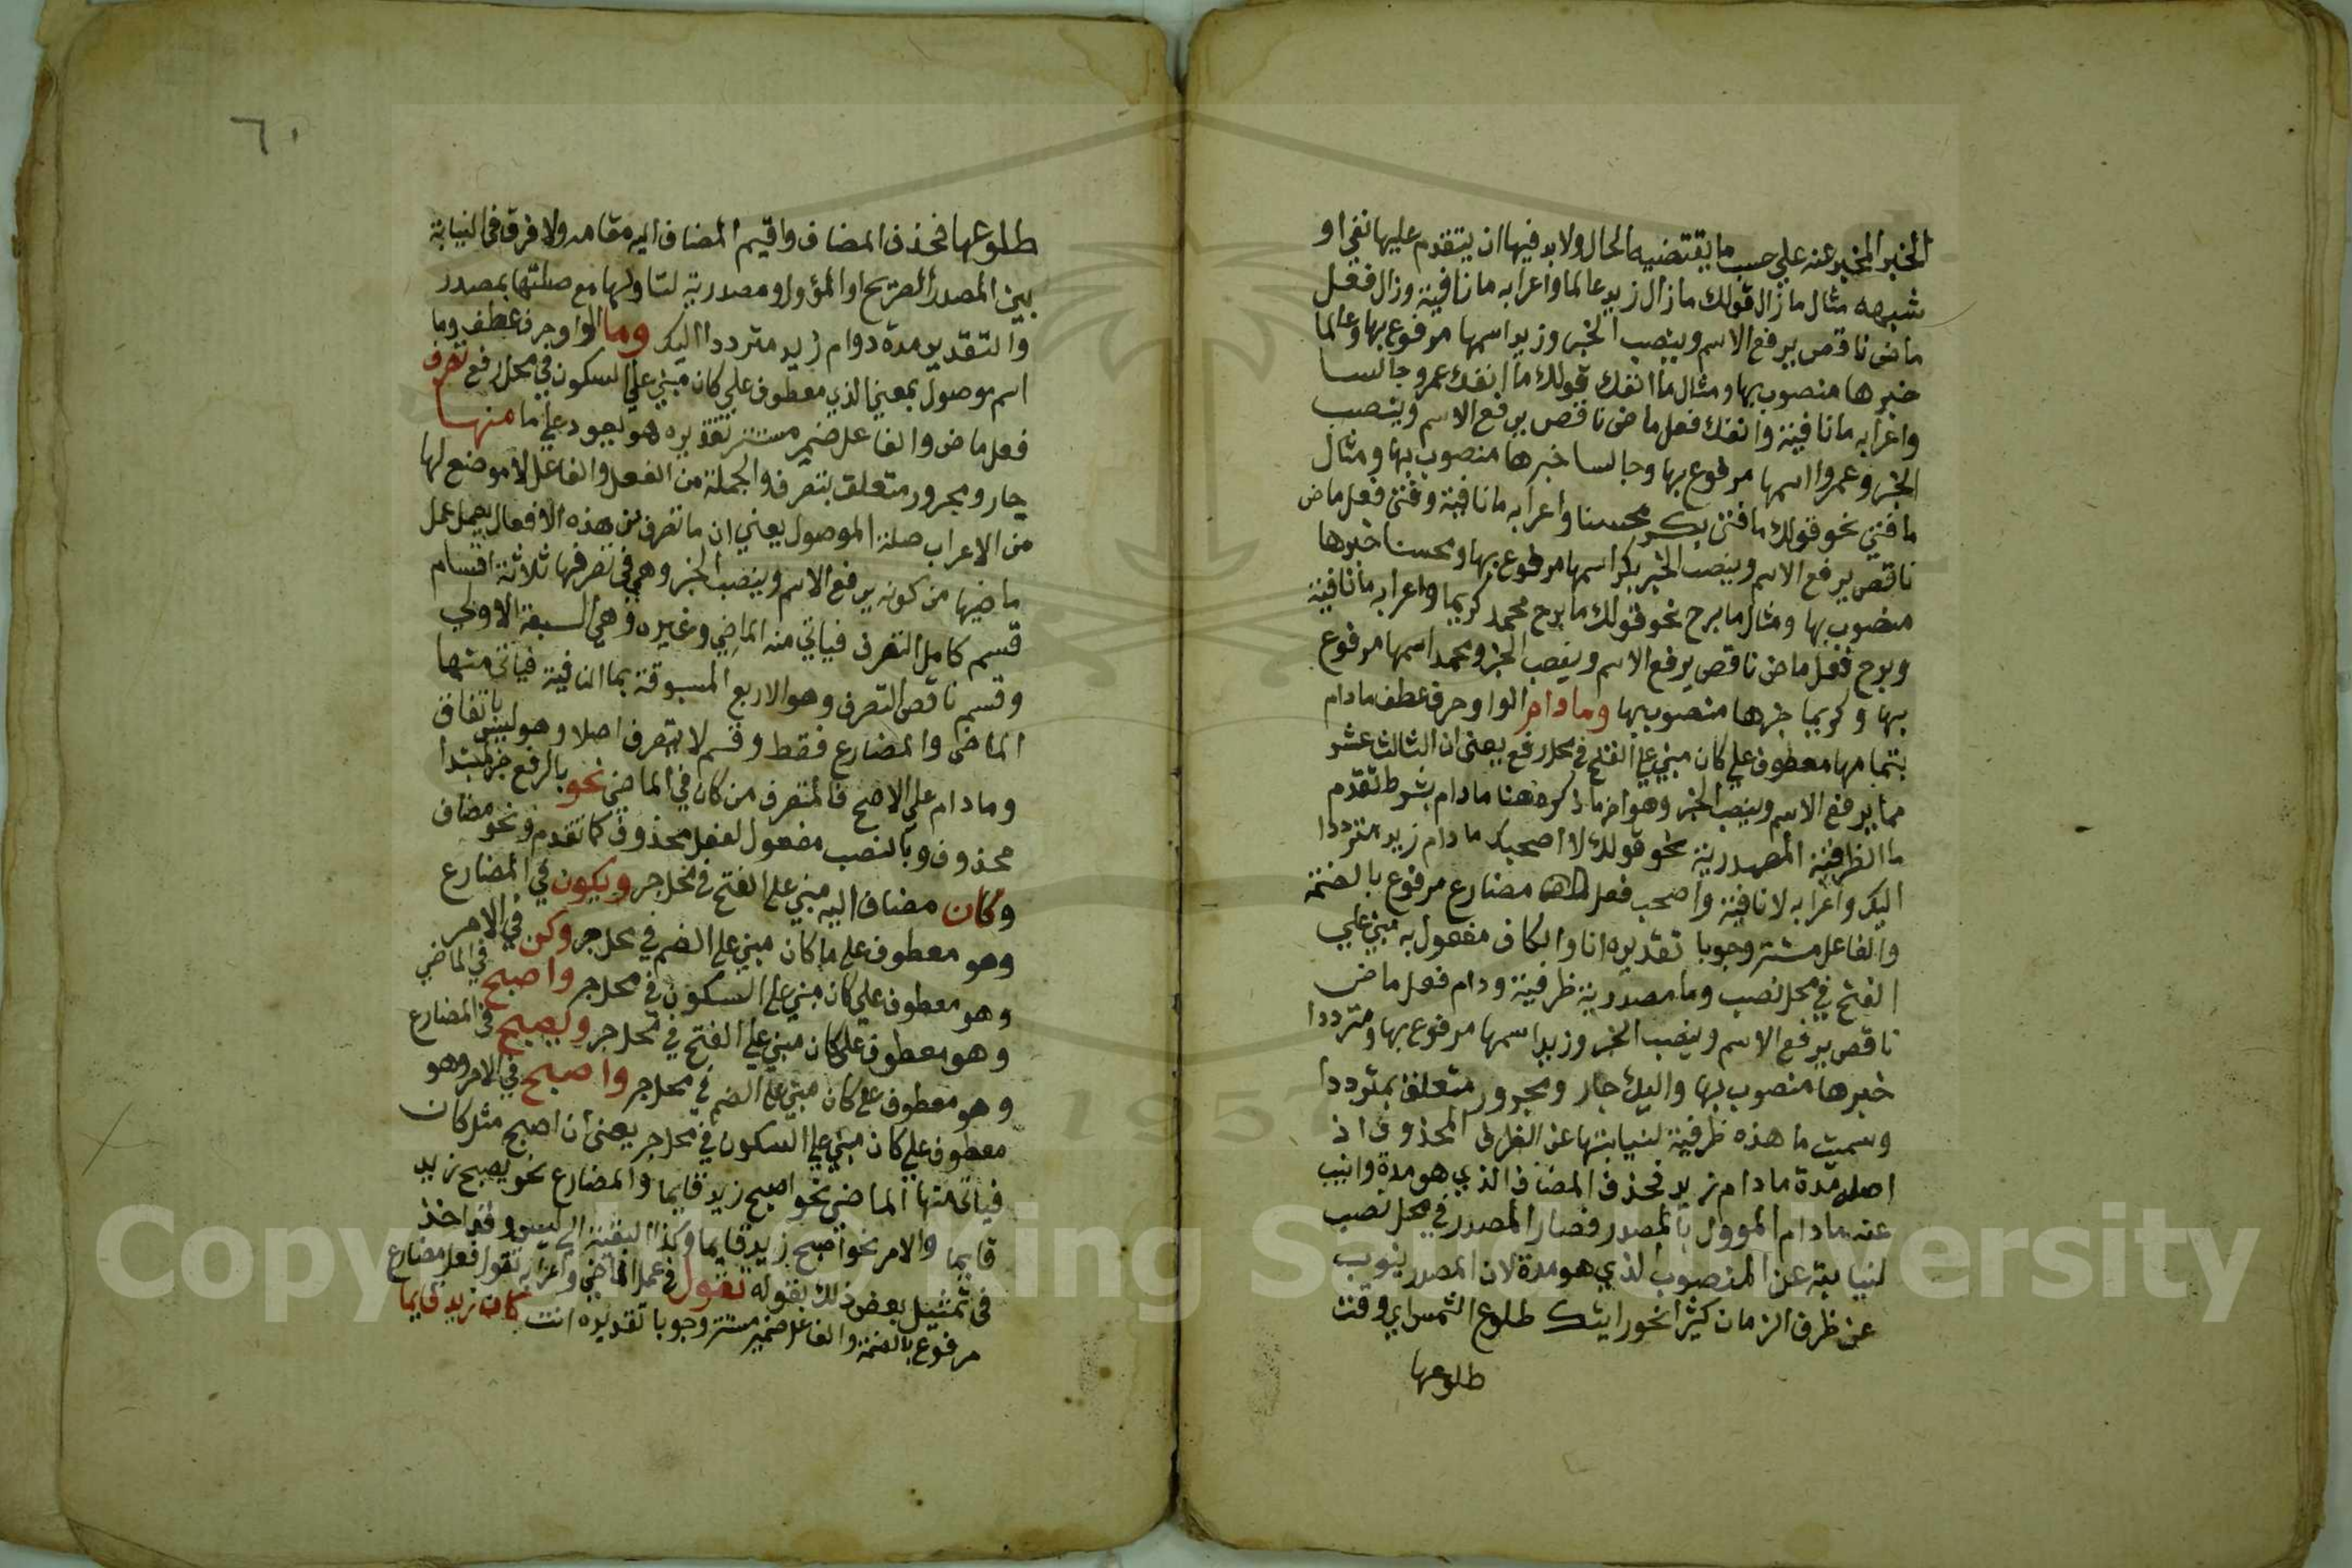 الخبر المخبر عنه علي حسب ما يقتضيه الحال ولا بد فيها ان يتقدم عليها نفي او
شبهه مثال ما زال قولك ما زال زيد عالما واعرابه ما نافية وزال فعل
ماض ناقص يرفع الاسم وينصب الخبر وزيد اسمها مرفوع بها وعالما
خبرها منصوب بها ومثال ما انفك قولك ما انفك عمرو جالسا
واعرابه ما نافية وانفك فعل ماض ناقص يرفع الاسم وينصب
الخبر وعمروا اسمها مرفوع بها وجالسا خبرها منصوب بها ومثال
ما فتئ نحو قولك ما فتئ بكر محسنا واعرابه ما نافية وفتئ فعل ماض
ناقص يرفع الاسم وينصب الخبر بكر اسمها مرفوع بها ومحسنا خبرها
منصوب بها ومثال ما برح نحو قولك ما برح محمد كريما واعرابه ما نافية
وبرح فعل ماض ناقص يرفع الاسم وينصب الخبر ومحمد اسمها مرفوع
بها وكريما خبرها منصوب بها وما دام الواو حرف عطف ما دام
بتمامها معطوف علي كان مبني علي الفتح في محل رفع يعني ان الثالث عشر
مما يرفع الاسم وينصب الخبر وهو اخر ما ذكره هنا ما دام بشرط تقدم
ما الظرفية المصدرية نحو قولك لا اصحبك ما دام زيد مترددا
اليك واعرابه لا نافية واصحب فعل مضارع مرفوع بالضمة
والفاعل مستتر وجوبا تقديره انا والكاف مفعول به مبني علي
الفتح في محل نصب وما مصدرية ظرفية ودام فعل ماض
ناقص يرفع الاسم وينصب الخبر وزيد اسمها مرفوع بها ومترددا
خبرها منصوب بها واليك جار ومجرور متعلق بمترددا
وسميت ما هذه ظرفية لنيابتها عن الظرف المحذوف اذ
اصله مدة ما دام زيد فحذف المضاف الذي هو مدة وانيب
عنه ما دام المووول بالمصدر فصار المصدر في محل نصب
لنيابته عن المنصوب الذي هو مدة لان المصدر ينوب
عن ظرف الزمان كثيرا نحو رايتك طلوع الشمس اي وقت
طلوعها
٦٠
طلوعها فحذف المضاف واقيم المضاف اليه مقامه ولا فرق في النيابة
بين المصدر الصريح او المؤول ومصدرية لتاولها مع صلتها بمصدر
والتقدير مدة دوام زيد مترددا اليك وما الواو حرف عطف وما
اسم موصول بمعني الذي معطوف علي كان مبني علي السكون في محل رفع تصرف
فعل ماض والفاعل ضمير مستتر تقديره هو يعود علي ما منها
جار ومجرور متعلق بتصرف والجملة من الفعل والفاعل لا موضع لها
من الاعراب صلة الموصول يعني ان ما تصرف من هذه الافعال يعمل عمل
ماضيها من كونه يرفع الاسم وينصب الخبر وهي في تصرفها ثلاثة اقسام
قسم كامل التصرف فياتي منه الماضي وغيره وهي السبعة الاولي
وقسم ناقص التصرف وهو الاربع المسبوقة بما النافية فياتي منها
الماضي والمضارع فقط وقسم لا يتصرف اصلا وهو ليس باتفاق
وما دام علي الاصح فالمتصرف من كان في الماضي نحو بالرفع خبر لمبتدا
محذوف وبالنصب مفعول لفعل محذوف كما تقدم ونحو مضاف
وكان مضاف اليه مبني علي الفتح في محل جر ويكون في المضارع
وهو معطوف علي ما كان مبني علي الضم في محل جر وكن في الامر
وهو معطوف علي كان مبني علي السكون في محل جر واصبح في الماضي
وهو معطوف علي كان مبني علي الفتح في محل جر ويصبح في المضارع
وهو معطوف علي كان مبني علي الضم في محل جر واصبح في الامر وهو
معطوف علي كان مبني علي السكون في محل جر يعني ان اصبح مثل كان
فياتي منها الماضي نحو اصبح زيد قايما والمضارع نحو يصبح زيد
قايما والامر نحو اصبح زيد قايما وكذا البقية الي ليس وقد اخذ
في تمثيل بعض ذلك بقوله تقول في عمل الماضي واعرابه تقول فعل مضارع
مرفوع بالضمة والفاعل ضمير مستتر وجوبا تقديره انت كان زيد قايما
Copyright © King Saud University
1957